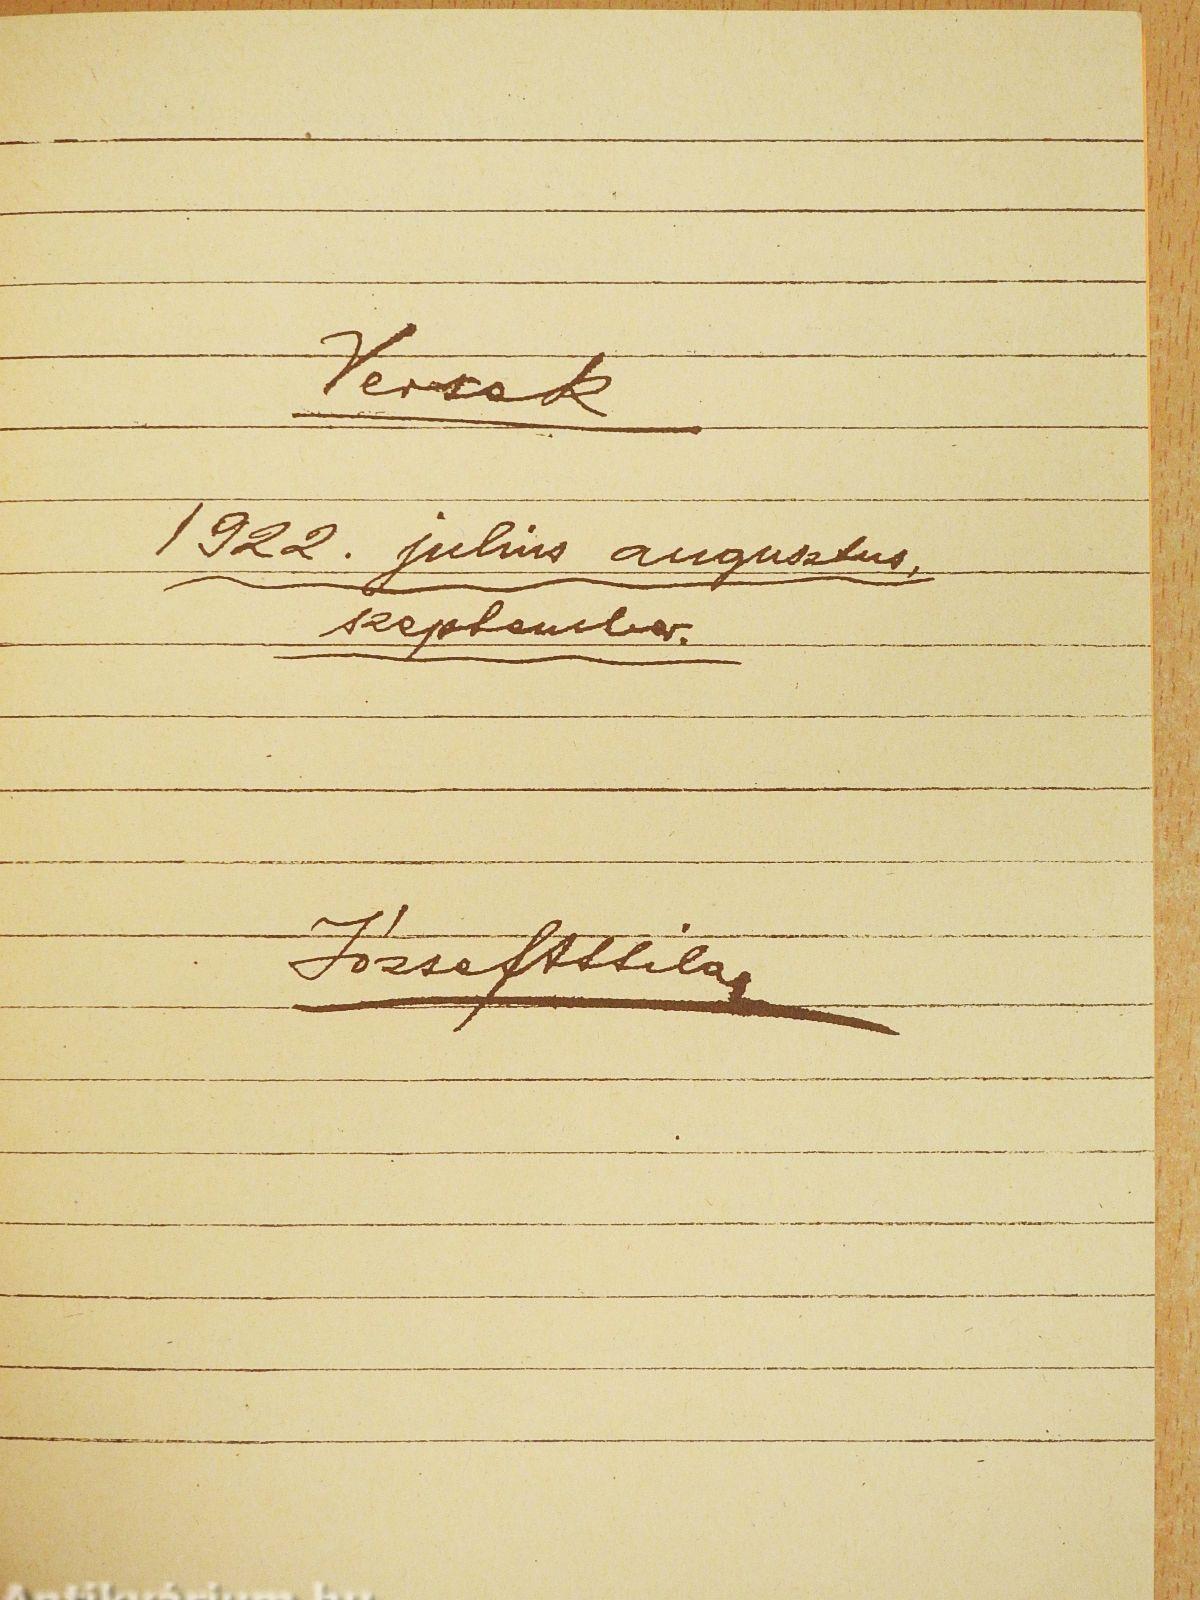 Versek
1922. julius augusztus,
szeptember.
József Attila
Antikvárium.hu